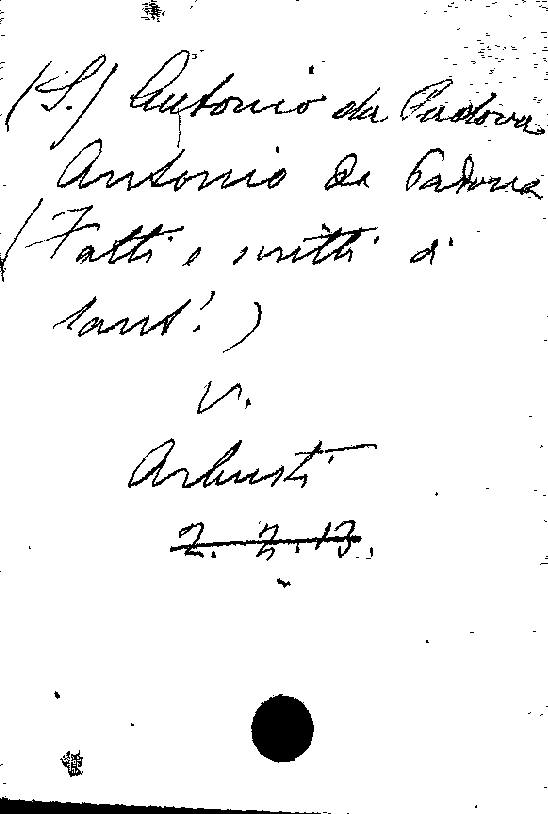 (S.) Antonio da Padova
Antonio da Padova
(Fatti e scritti di
Sant'.)
V.
Arbusti
2. Z. 13.